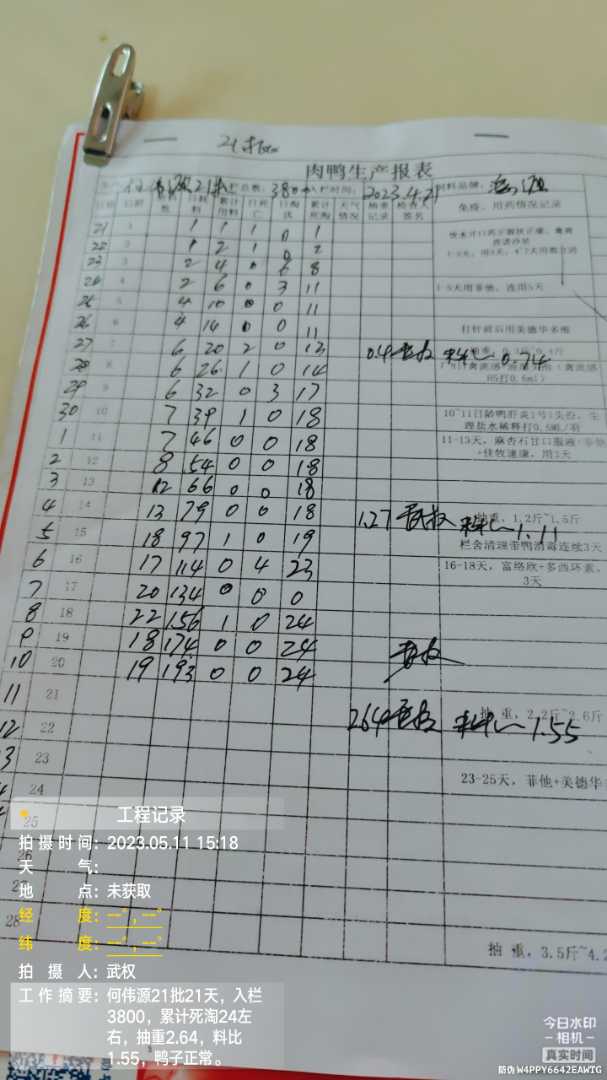 21批
肉鸭生产报表
21批 栏总数: 3800 入栏时间: 2023.4.21 饲料品牌:
日龄 日耗料 累计用料 日死亡 日淘汰 累计死淘 天气情况 抽重记录 检查人签名 免疫、用药情况记录
21 1 1 1 1 0 1
22 2 1 2 1 0 2
23 3 2 4 0 6 8
24 4 2 6 0 3 11 1-5天用菲他,连用5天
25 5 4 10 0 0 11
26 6 4 14 0 0 11 打针前后用美德华多维
27 7 6 20 2 0 13 0.4 武权 料比 0.74
28 8 6 26 1 0 14
29 9 6 32 0 3 17
30 10 7 39 1 0 18 10~11日龄鸭肝炎1号1头份,生理盐水稀释打0.5ML/羽
1 11 7 46 0 0 18 11-13天,麻杏石甘口服液+
+佳牧速康,用3天
2 12 8 54 0 0 18
3 13 12 66 0 0 18
4 14 13 79 0 0 18 1.27 武权 料比 1.11 抽重,1.2斤~1.5斤
5 15 18 97 1 0 19 栏舍清理带鸭消毒连续3天
6 16 17 114 0 4 23 16-18天,富络欣+多西环素,3天
7 17 20 134 0 0 0
8 18 22 156 1 0 24
9 19 18 174 0 0 24
10 20 19 193 0 0 24 武权
11 21 2.64 武权 料比 1.55 抽重,2.2斤~2.6斤
12 22
3 23 23-25天,菲他+美德华
24
25
26
27
28 抽重,3.5斤~4.2
工程记录
拍摄时间: 2023.05.11 15:18
天气:
地点: 未获取
经度: --°,--°
纬度: --°,--°
拍摄人: 武权
工作摘要: 何伟源21批21天,入栏
3800,累计死淘24左
右,抽重2.64,料比
1.55,鸭子正常。
今日水印
-相机-
真实时间
防伪 W4PPY6642EAWTG